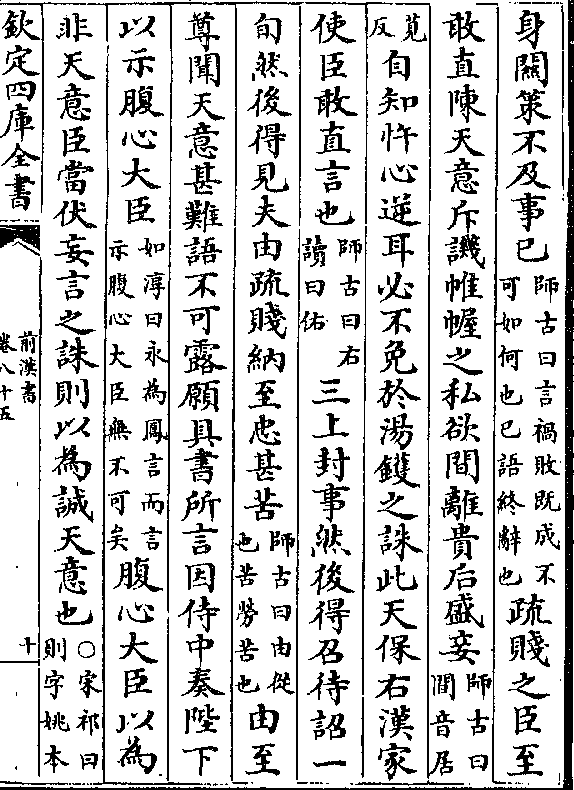 身關策不及事已師古曰言禍敗既成不可如何也已語終辭也疏賤之臣至
敢直陳天意斥譏帷幄之私欲間離貴后盛妾師古曰間音居
莧反自知忤心逆耳必不免於湯鑊之誅此天保右漢家
使臣敢直言也師古曰右讀曰佑三上封事然後得召待詔一
旬然後得見夫由疏賤納至忠甚苦師古曰由從也苦勞苦也由至
尊聞天意甚難語不可露願具書所言因侍中奏陛下
以示腹心大臣如淳曰永為鳳言而言示腹心大臣無不可矣腹心大臣以為
非天意臣當伏妄言之誅則以為誠天意也○宋祁曰則字姚本
欽定四庫全書
前漢書
卷八十五
十